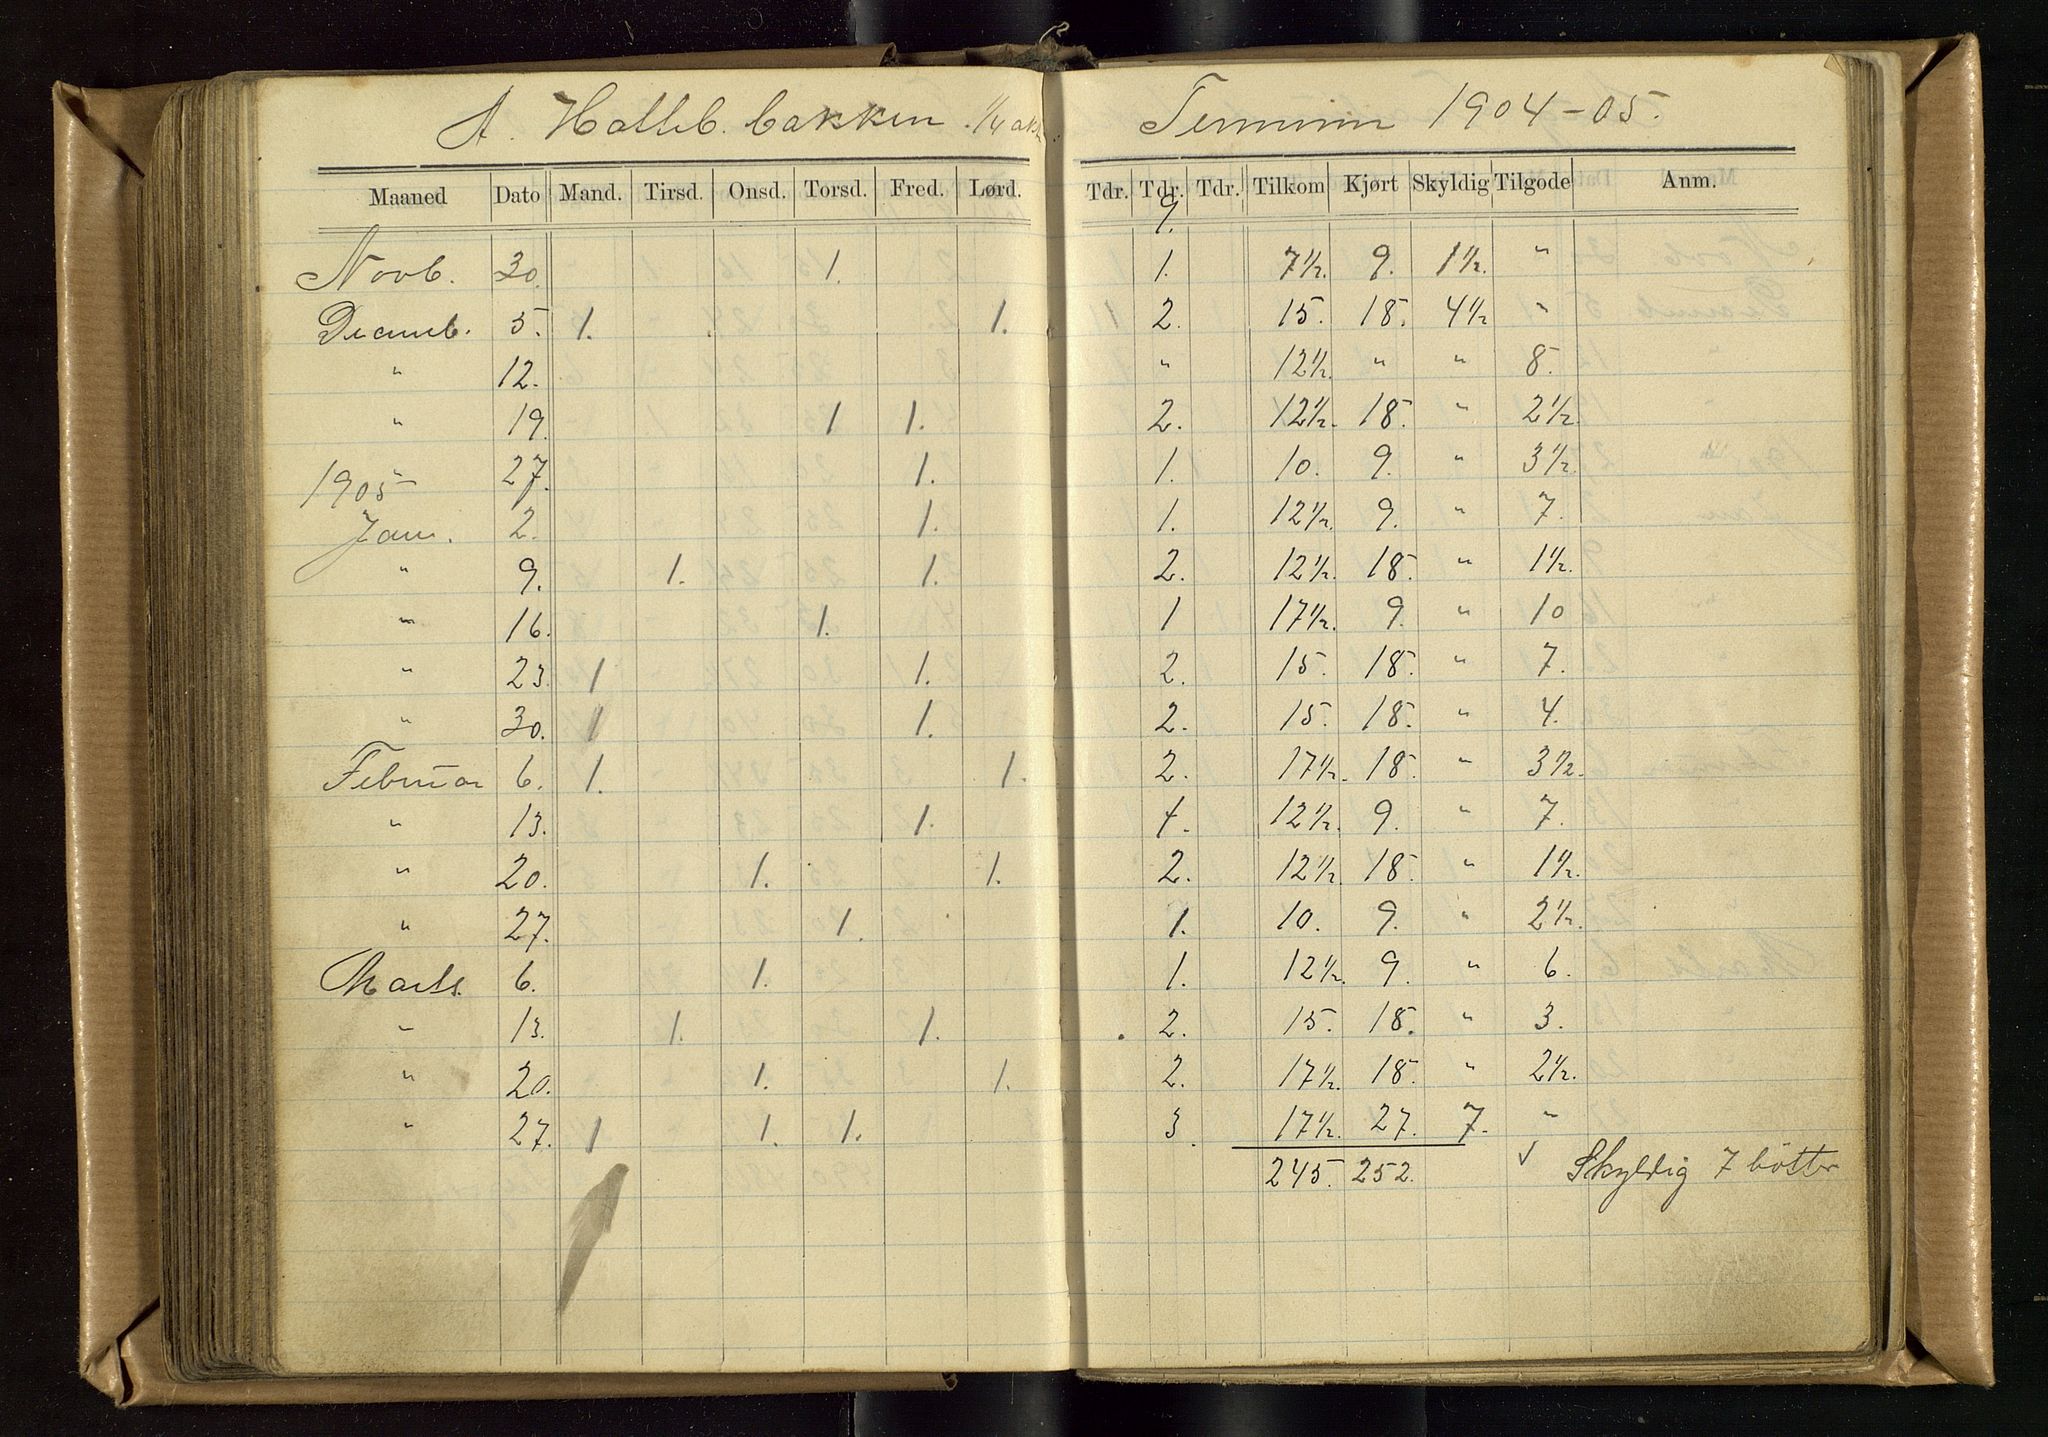 A. Holleb. bakken. 1/4 akt. Terminin 1904-05.
Maaned Dato Mand. Tirsd. Onsd. Torsd. Fred. Lørd. Tdr. Tdr. Tdr. Tilkom Kjørt Skyldig Tilgode Anm.
9.
Novb. 30. 1. 1. 7½. 9. 1½. "
Decemb. 5. 1. 1. 2. 15. 18. 4½ "
" 12. " 12½. " " 8.
" 19. 1 1. 2. 12½. 18. " 2½.
" 27. 1. 1. 10. 9. " 3½.
1905
Jan. 2. 1. 1. 12½. 9. " 7.
" 9. 1. 1. 2. 12½. 18. " 1½.
" 16. 1. 1 17½. 9. " 10
" 23. 1 1. 2. 15. 18. " 7.
" 30. 1 1. 2. 15. 18. " 4.
Februar 6. 1. 1. 2. 17½. 18. " 3½.
" 13. 1. 1. 12½. 9. " 7.
" 20. 1. 1. 2. 12½. 18. " 1½.
" 27. 1. 1. 10. 9. " 2½.
Marts. 6. 1. 1. 12½. 9. " 6.
" 13. 1. 1. 2. 15. 18. " 3.
" 20. 1. 1. 2. 17½. 18. " 2½.
" 27. 1 1. 1. 3. 17½. 27. 7. "
245. 252. √ Skyldig 7 bötter